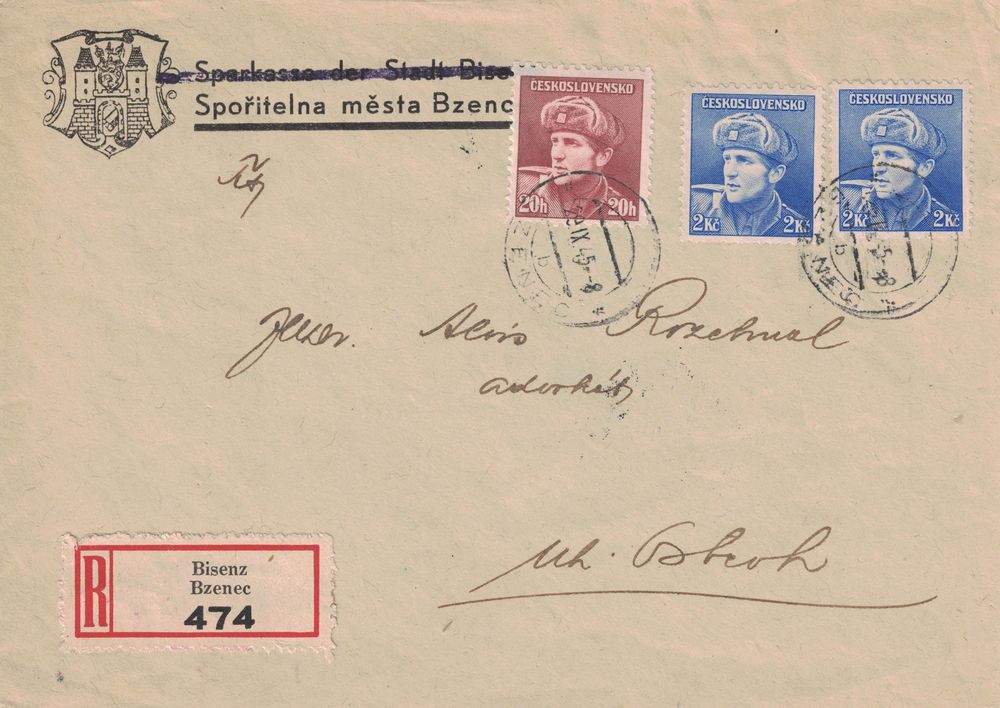 Sparkasse der Stadt Bise
Spořitelna města Bzenec
ČESKOSLOVENSKO
20h 20h
ČESKOSLOVENSKO
2Kč 2Kč
ČESKOSLOVENSKO
2Kč 2Kč
BZENEC
IX.45-8
b
BZENEC
b
Alois
advokát
Uh. Ostroh
R
Bisenz
Bzenec
474